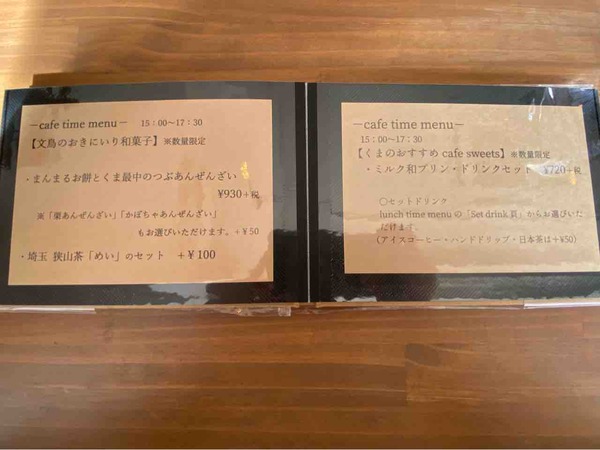 －cafe time menu－ 15：00～17：30
【文鳥のおきにいり和菓子】※数量限定
・まんまるお餅とくま最中のつぶあんぜんざい
¥930+税
※「栗あんぜんざい」「かぼちゃあんぜんざい」
もお選びいただけます。+¥50
・埼玉 狭山茶「めい」のセット +¥100
－cafe time menu－
15：00～17：30
【くまのおすすめ cafe sweets】※数量限定
・ミルク和プリン・ドリンクセット ¥720+税
○セットドリンク
lunch time menu の「Set drink 頁」からお選びいた
だけます。
（アイスコーヒー・ハンドドリップ・日本茶は+¥50）